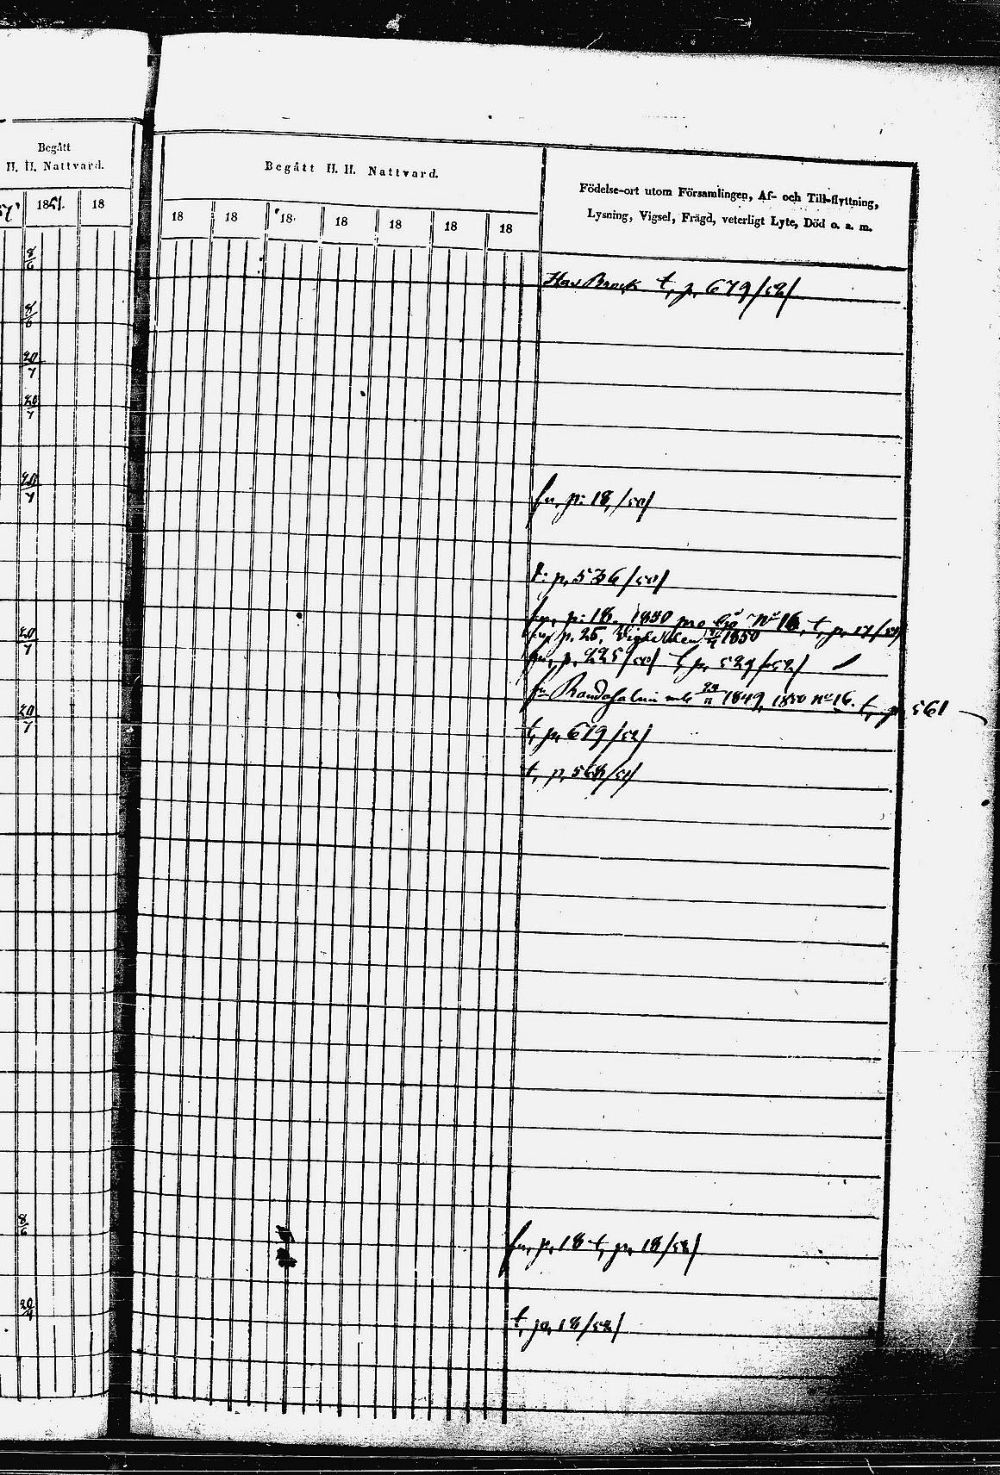 Begått
H. H. Nattvard.
1851. 18
8/6
8/6
20/7
20/7
20/7
20/7
20/7
8/6
20/7
Begått H. H. Nattvard.
18 18 18 18 18 18 18
Födelse-ort utom Församlingen, Af- och Till-flyttning,
Lysning, Vigsel, Frägd, veterligt Lyte, Död o. s. m.
t, p. 679/52/
fr, p. 18, /50/
t. p. 536/50/
fr, p. 18, 1850 No 16, t, p. 17/
fr, p. 25, 1850
fr, p. 225/50/ t, p. 529/52/
fr Randasalmi 1849, 1850 No 16. t, p. 561
t, p. 679/52/
t, p. 568/52/
fr, p. 18 t, p. 18/52/
t, p. 18/52/